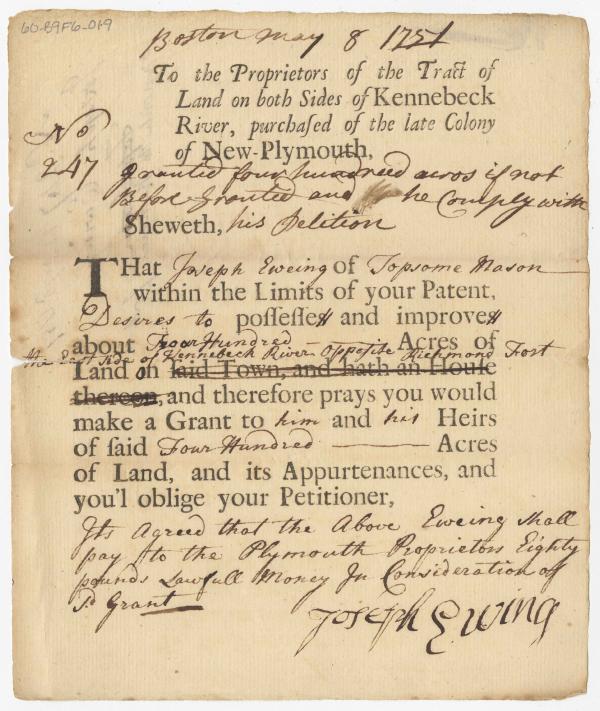 60-B9F6-019
Boston May 8 1751
To the Proprietors of the Tract of
Land on both Sides of Kennebeck
River, purchaſed of the late Colony
of New-Plymouth,
No
247
granted four hundreed acros if not
Before Granted and he Comply with
Sheweth, his Petition
THat Joseph Eweing of Topsome Mason
within the Limits of your Patent,
Desires to poſſeſſe and improve
about Four Hundred Acres of
the East side of Kennebeck River Oppesite Richmond Fort
Land on ſaid Town, and hath an Houſe
thereon, and therefore prays you would
make a Grant to him and his Heirs
of ſaid Four Hundred Acres
of Land, and its Appurtenances, and
you'l oblige your Petitioner,
Its Agreed that the Above Eweing shall
pay to the Plymouth Proprietors Eighty
pounds Lawfull Money In Consideration of
sd Grant
Joseph Ewing